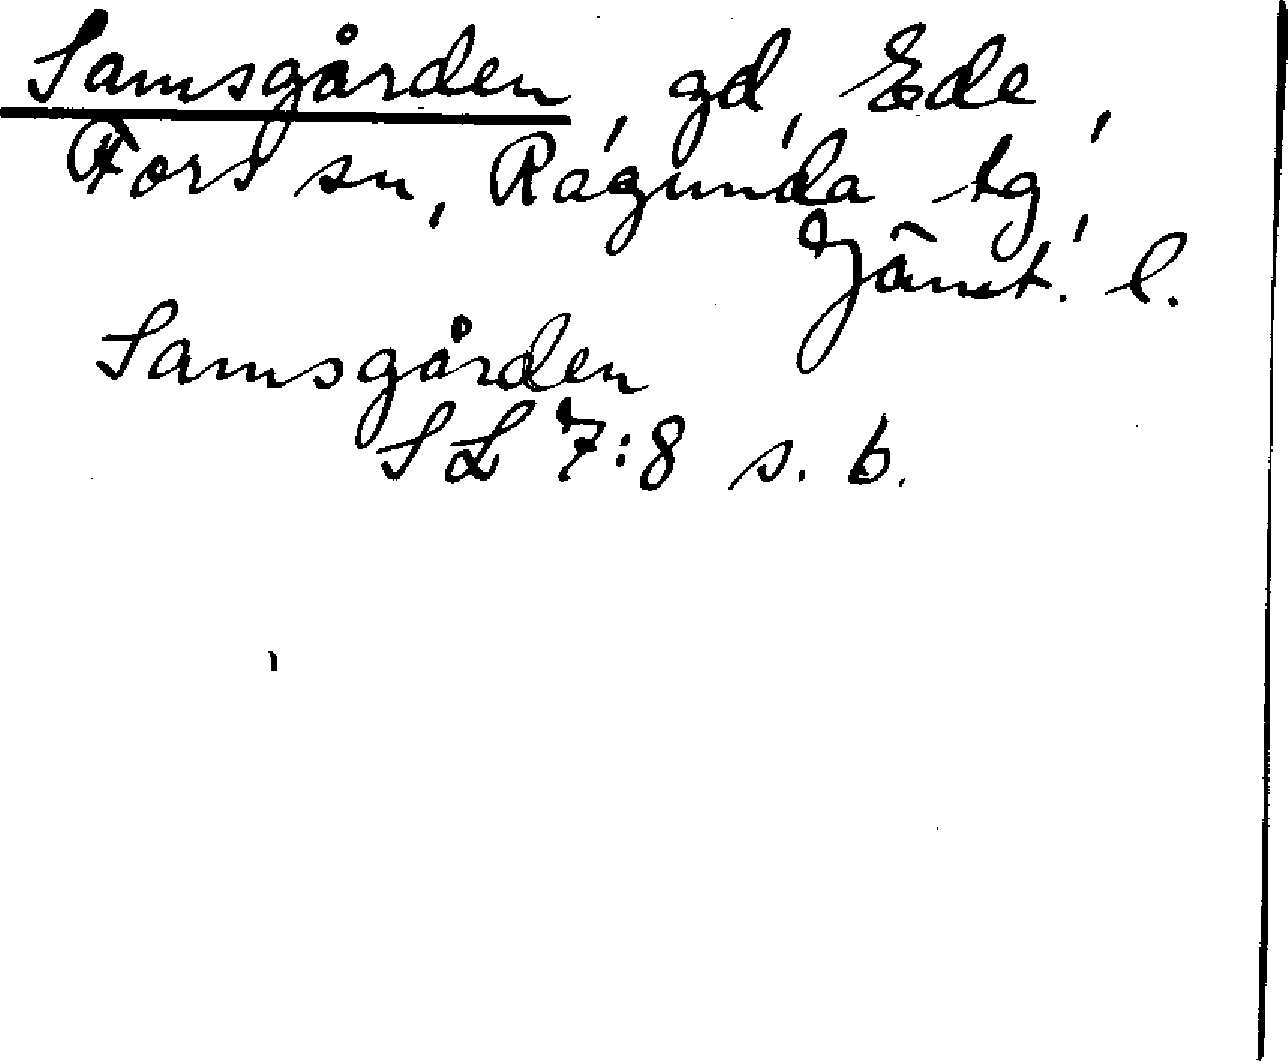 Samsgården, gd, Ede,
Fors sn, Ragunda tg,
Jämt. l.
Samsgården
SL 7:8 s. 6.